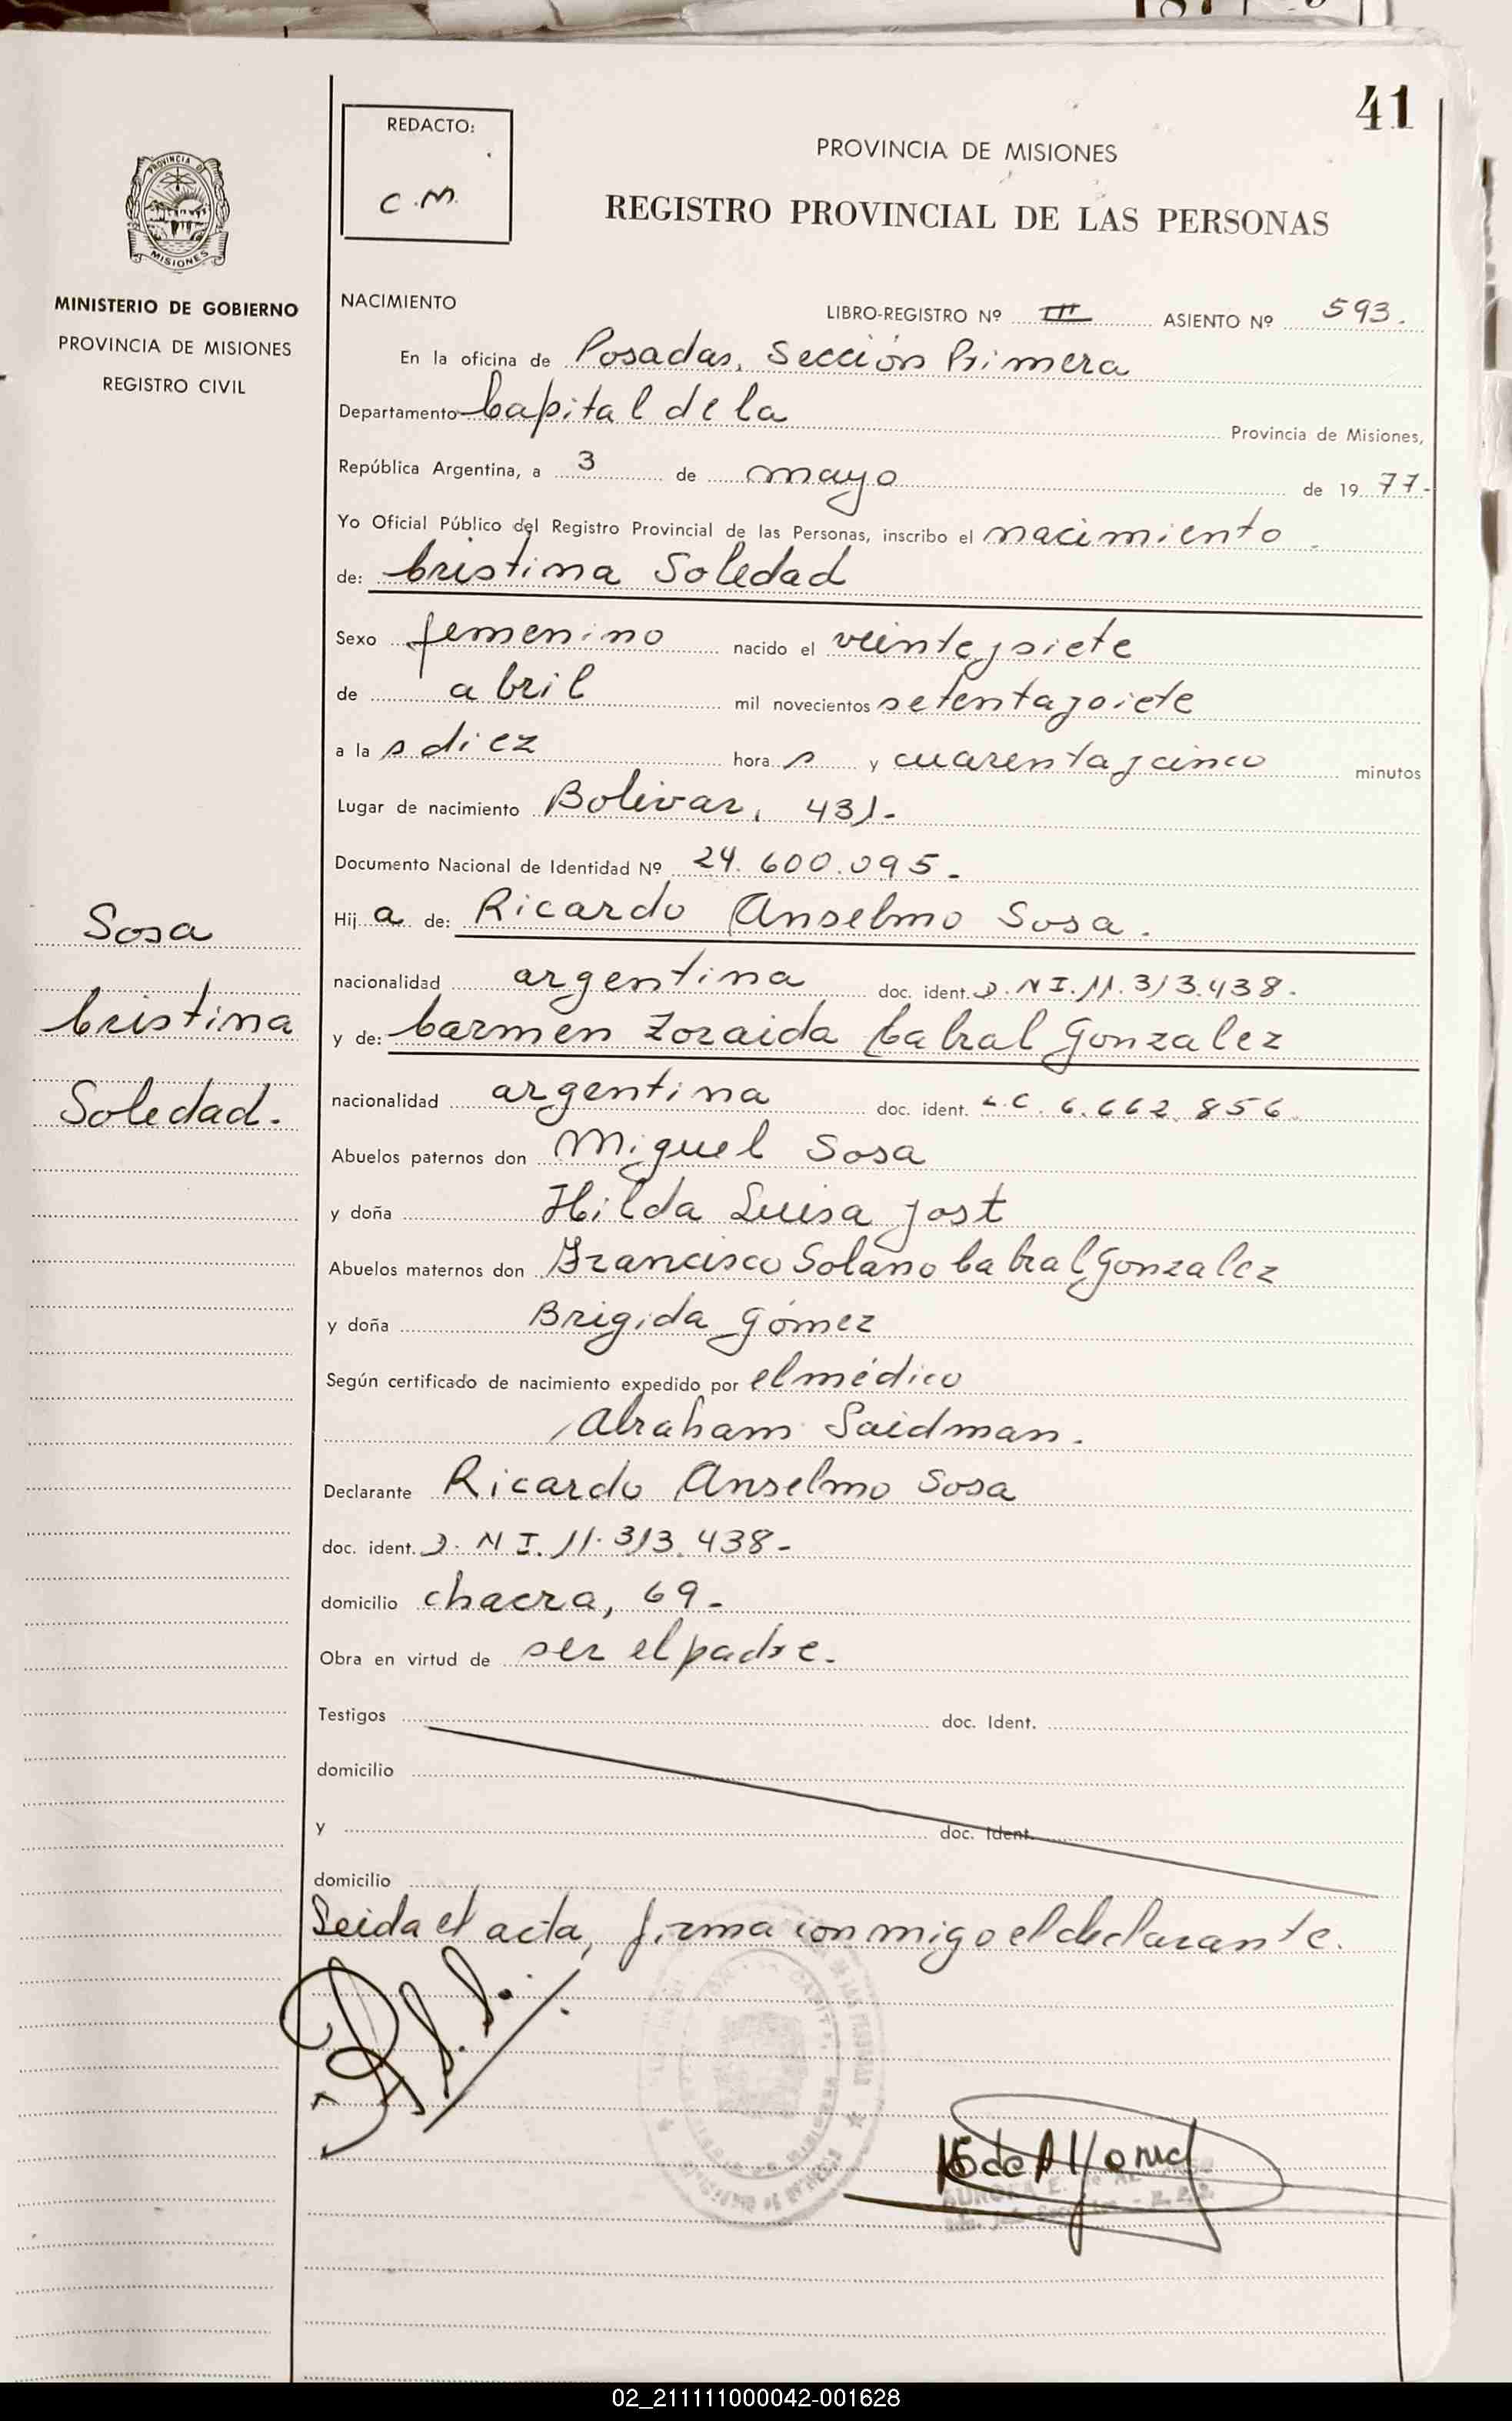 41
REDACTO:
C.M.
PROVINCIA DE MISIONES
REGISTRO PROVINCIAL DE LAS PERSONAS
PROVINCIA DE
MISIONES
MINISTERIO DE GOBIERNO
PROVINCIA DE MISIONES
REGISTRO CIVIL
NACIMIENTO
LIBRO-REGISTRO Nº III ASIENTO Nº 593.
En la oficina de Posadas, Sección Primera
Departamento Capital de la Provincia de Misiones,
República Argentina, a 3 de mayo de 19 77-
Yo Oficial Público del Registro Provincial de las Personas, inscribo el nacimiento
de: Cristina Soledad
Sexo femenino nacido el veinteysiete
de abril mil novecientos setentaysiete
a la s diez hora s y cuarentaycinco minutos
Lugar de nacimiento Bolivar, 431.-
Documento Nacional de Identidad Nº 24.600.095.-
Hij a de: Ricardo Anselmo Sosa.
nacionalidad argentina doc. ident. D.N.I. 11.313.438.-
y de: Carmen Zoraida Cabral Gonzalez
nacionalidad argentina doc. ident. L.C. 6.662.856.
Sosa
Cristina
Soledad.-
Abuelos paternos don Miguel Sosa
y doña Hilda Luisa Jost
Abuelos maternos don Francisco Solano Cabral Gonzalez
y doña Brigida Gómez
Según certificado de nacimiento expedido por el médico
Abraham Saidman.
Declarante Ricardo Anselmo Sosa
doc. ident. D.N.I. 11.313.438-
domicilio chacra, 69.-
Obra en virtud de ser el padre.
Testigos doc. Ident.
domicilio
y doc. Ident.
domicilio
Leida el acta, firma conmigo el declarante.
02_211111000042-001628